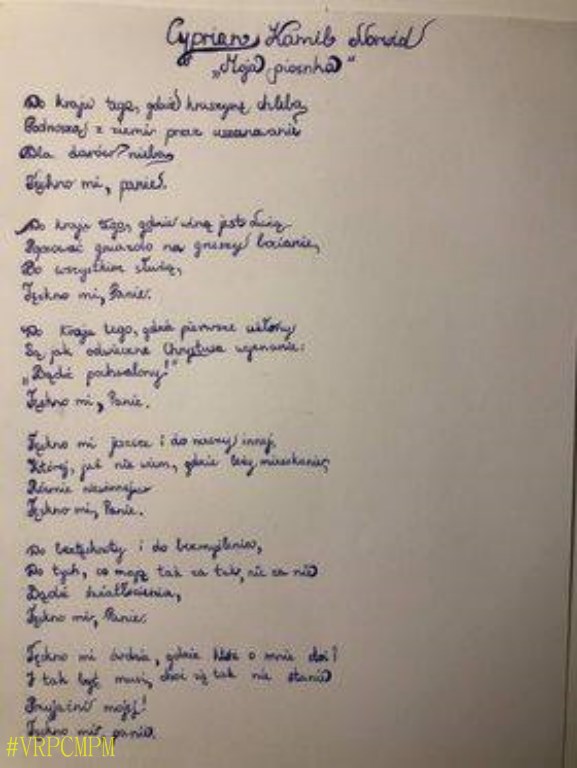 Cyprian Kamil Norwid
"Moja piosnka"
Do kraju tego, gdzie kruszynę chleba
Podnoszą z ziemi przez uszanowanie
Dla darów nieba
Tęskno mi, panie.
Do kraju tego, gdzie winą jest dużą
Popsować gniazdo na gruszy bocianie,
Bo wszystkim służą,
Tęskno mi, Panie.
Do kraju tego, gdzie pierwsze ukłony
Są jak odwieczne Chrystusa wyznanie:
"Bądź pochwalony!"
Tęskno mi, Panie.
Tęskno mi jeszcze i do rzeczy innej
Której, już nie wiem, gdzie leży mieszkanie,
Równie niewinnej
Tęskno mi, Panie.
Do beztęskoty i do bezmyślenia,
Do tych, co mają tak za tak, nie za nie
Bądź światłocienia,
Tęskno mi, Panie.
Tęskno mi ówdzie, gdzie któż o mnie stoi?
I tak być musi, choć się tak nie stanie
Przyjaźni mojej!
Tęskno mi panie.
#VRPCMPM